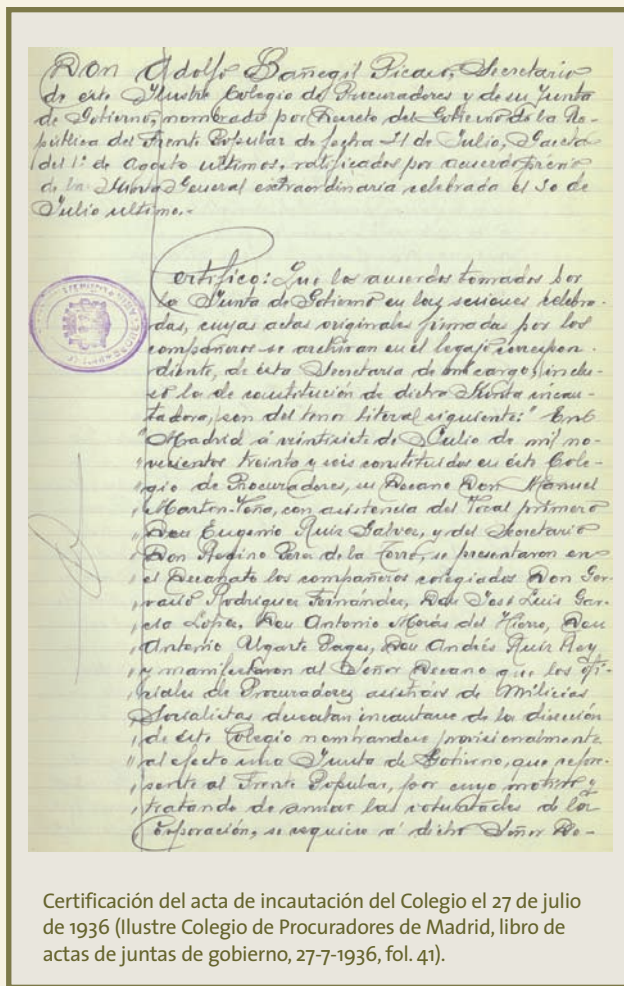 Don Adolfo Bañegil Picazo, Secretario
de este Ilustre Colegio de Procuradores y de su Junta
de Gobierno, nombrado por Decreto del Gobierno de la Re-
pública del Frente Popular de fecha 31 de Julio, Gaceta
del 1º de Agosto ultimos, ratificados por acuerdo
de la Junta General extraordinaria celebrada el 30 de
Julio ultimo.-
Certifico: Que los acuerdos tomados por
la Junta de Gobierno en las sesiones celebra-
das, cuyas actas originales firmadas por los
compañeros se archivan en el legajo correspon-
diente, de esta Secretaria de mi cargo, inclu-
so la de constitución de dicha Junta incau-
tadora, son del tenor literal siguiente: " En
"Madrid á veintisiete de Julio de mil no-
"vecientos treinta y seis constituidos en este Cole-
"gio de Procuradores, su Decano Don Manuel
"Marton , con asistencia del Vocal primero
"Don Eugenio Ruiz Galvez, y del Secretario
"Don Regino Perez de la Torre, se presentaron en
"el Decanato los compañeros colegiados Don Ger-
"vasio Rodriguez Fernández, Don José Luis Gar-
"cia , Don Antonio Morás del Hierro, Don
"Antonio Ugarte Pages, Don Andrés Ruiz Rey
"y manifestaron al Señor Decano que los ofi-
"ciales de Procuradores asistidos de Milicias
"Socialistas deseaban incautarse de la dirección
"de este Colegio nombrandose provisionalmente
"al efecto una Junta de Gobierno, que repre-
"sente al Frente Popular, por cuyo motivo y
"tratando de las voluntades de la
"Corporación, se requiere á dicho Señor De-
Certificación del acta de incautación del Colegio el 27 de julio
de 1936 (Ilustre Colegio de Procuradores de Madrid, libro de
actas de juntas de gobierno, 27-7-1936, fol. 41).